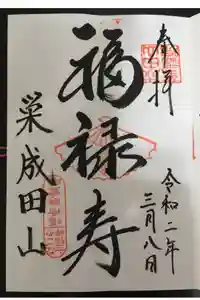 奉拝
令和二年
三月八日
福禄寿
巣成田山